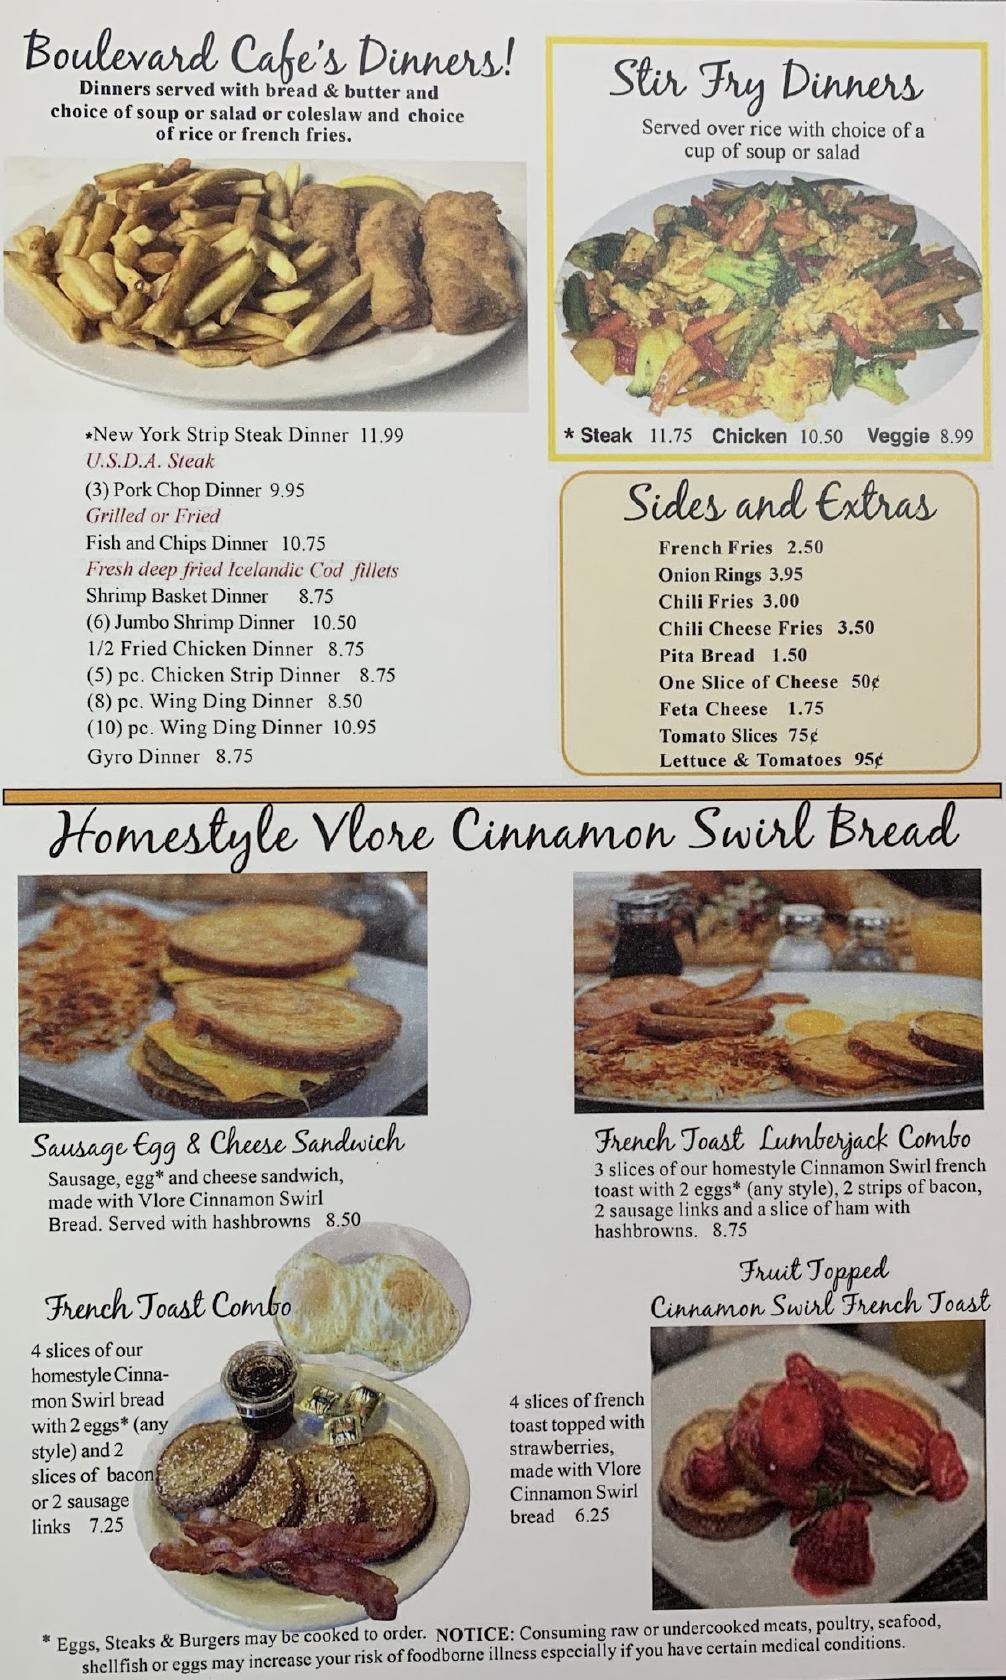 Boulevard Cafe's Dinners!
Dinners served with bread & butter and
choice of soup or salad or coleslaw and choice
of rice or french fries.
*New York Strip Steak Dinner 11.99
U.S.D.A. Steak
(3) Pork Chop Dinner 9.95
Grilled or Fried
Fish and Chips Dinner 10.75
Fresh deep fried Icelandic Cod fillets
Shrimp Basket Dinner 8.75
(6) Jumbo Shrimp Dinner 10.50
1/2 Fried Chicken Dinner 8.75
(5) pc. Chicken Strip Dinner 8.75
(8) pc. Wing Ding Dinner 8.50
(10) pc. Wing Ding Dinner 10.95
Gyro Dinner 8.75
Stir Fry Dinners
Served over rice with choice of a
cup of soup or salad
* Steak 11.75 Chicken 10.50 Veggie 8.99
Sides and Extras
French Fries 2.50
Onion Rings 3.95
Chili Fries 3.00
Chili Cheese Fries 3.50
Pita Bread 1.50
One Slice of Cheese 50¢
Feta Cheese 1.75
Tomato Slices 75¢
Lettuce & Tomatoes 95¢
Homestyle Vlore Cinnamon Swirl Bread
Sausage Egg & Cheese Sandwich
Sausage, egg* and cheese sandwich,
made with Vlore Cinnamon Swirl
Bread. Served with hashbrowns 8.50
French Toast Lumberjack Combo
3 slices of our homestyle Cinnamon Swirl french
toast with 2 eggs* (any style), 2 strips of bacon,
2 sausage links and a slice of ham with
hashbrowns. 8.75
French Toast Combo
4 slices of our
homestyle Cinna-
mon Swirl bread
with 2 eggs* (any
style) and 2
slices of bacon
or 2 sausage
links 7.25
Fruit Topped
Cinnamon Swirl French Toast
4 slices of french
toast topped with
strawberries,
made with Vlore
Cinnamon Swirl
bread 6.25
* Eggs, Steaks & Burgers may be cooked to order. NOTICE: Consuming raw or undercooked meats, poultry, seafood,
shellfish or eggs may increase your risk of foodborne illness especially if you have certain medical conditions.